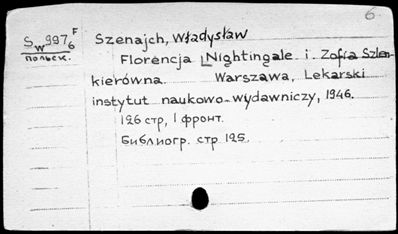 6
S W 997 F 6
польск.
Szenajch, Władysław
Florencja Nightingale i Zofia Szlen-
kierówna. Warszawa, Lekarski
instytut naukowo-wydawniczy, 1946.
126 стр, 1 фронт.
Библиогр. стр 125.